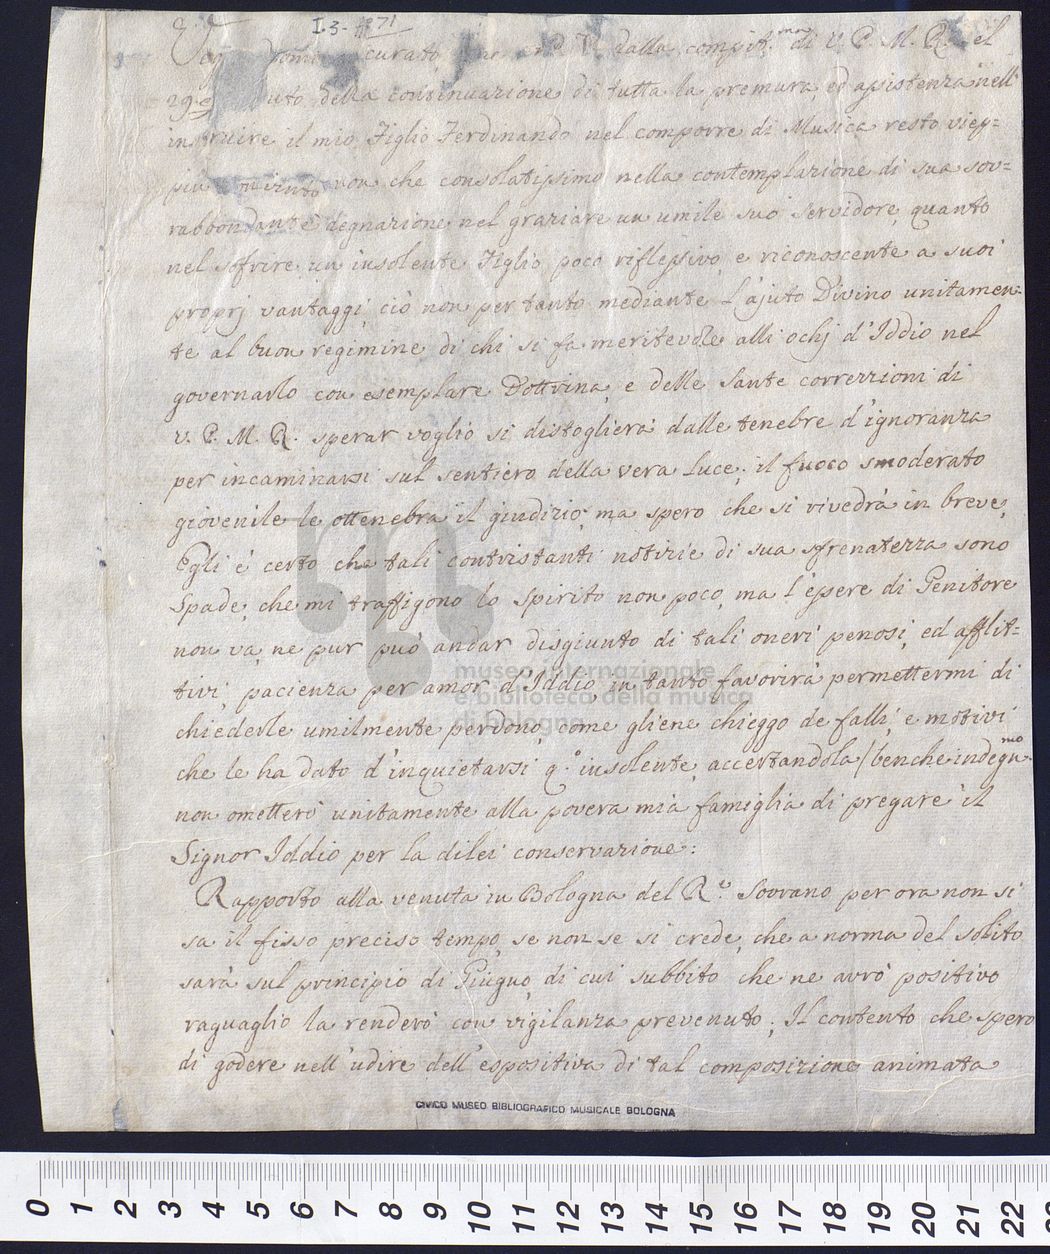 I.3. 71
curato dalla compit.ma di V. P. M. R. el
29 della continuazione di tutta la premura, ed assistenza nell'
instruire il mio Figlio Ferdinando nel comporre di Musica resto viep=
più non che consolatissimo nella contemplazione di sua sov=
rabbondante degnazione nel graziare un umile suo servidore quanto
nel sofrire un insolente Figlio poco riflessivo, e riconoscente a suoi
proprj vantaggi, ciò non per tanto mediante l'ajuto Divino unitamen=
te al buon regimine di chi si fa meritevole alli ochj d'Iddio nel
governarlo con esemplare Dottrina, e delle sante correzzioni di
V. P. M. R. sperar voglio si distoglierà dalle tenebre d'ignoranza
per incaminarsi sul sentiero della vera luce; il fuoco smoderato
giovenile le ottenebra il giudizio; ma spero che si vivedrà in breve,
Egli è certo che tali contristanti notizie di sua sfrenatezza sono
Spade, che mi traffigono lo spirito non poco, ma l'essere di Genitore
non va, ne pur può andar disgiunto di tali oneri penosi, ed afflit=
tivi, pacienza per amor d'Iddio, in tanto favorirà permettermi di
chiederle umilmente perdono, come gliene chieggo de falli, e motivi
che le ha dato d'inquietarsi q.o insolente, accertandola (benche indegn.mo
non ometterò unitamente alla povera mia famiglia di pregare il
Signor Iddio per la dilei conservazione:
Rapporto alla venuta in Bologna del R.e Sovrano per ora non si
sa il fisso preciso tempo, se non se si crede, che a norma del solito
sarà sul principio di Giugno, di cui subbito che ne avrò positivo
raguaglio la renderò con vigilanza prevenuto; Il contento che spero
di godere nell'udire dell'espositiva di tal composizione animata
museo internazionale
e biblioteca della musica
di bologna
CIVICO MUSEO BIBLIOGRAFICO MUSICALE BOLOGNA
0 1 2 3 4 5 6 7 8 9 10 11 12 13 14 15 16 17 18 19 20 21 22